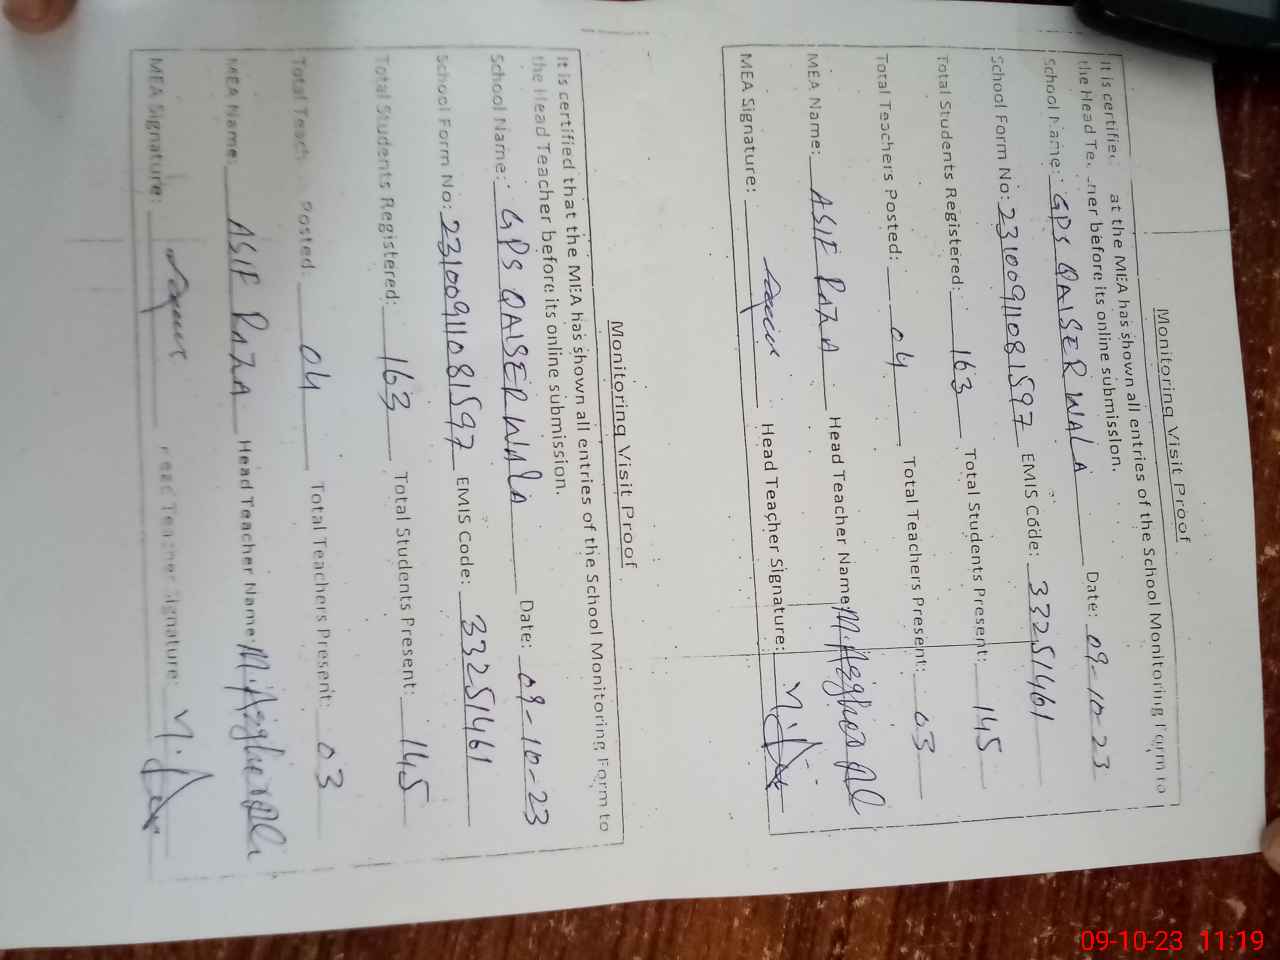 Monitoring Visit Proof
It is certified at the MEA has shown all entries of the School Monitoring Form to
the Head Te. .ner before its online submission.
School Name: GPS QAISER WALA Date: 09-10-23
School Form No: 23100911081597 EMIS Code: 33251461
Total Students Registered: 163 Total Students Present: 145
Total Teachers Posted: 04 Total Teachers Present: 03
MEA Name: ASIF RAZA Head Teacher Name: M. Asghar Ali
MEA Signature: Head Teacher Signature:
Monitoring Visit Proof
It is certified that the MEA has shown all entries of the School Monitoring Form to
the Head Teacher before its online submission.
School Name: GPS QAISER WALA Date: 09-10-23
School Form No: 23100911081597 EMIS Code: 33251461
Total Students Registered: 163 Total Students Present: 145
Total Teach Posted: 04 Total Teachers Present: 03
MEA Name: ASIF RAZA Head Teacher Name: M. Asghar Ali
MEA Signature: Head Teacher Signature:
09-10-23 11:19